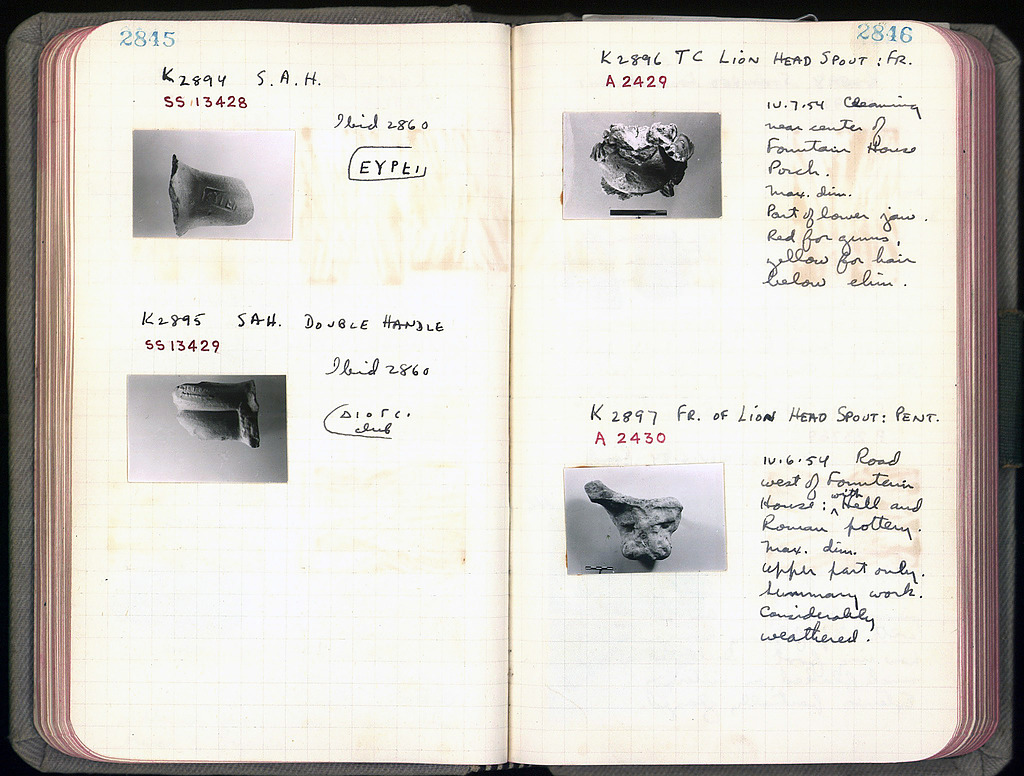 2845
K2894 S.A.H.
SS 13428
Ibid 2860
EYPEII
K2895 SAH. DOUBLE HANDLE
SS 13429
Ibid 2860
club
2846
K2896 TC LION HEAD SPOUT : FR.
A 2429
IV.7.54 Cleaning
near center of
Fountain House
Porch.
Max. dim.
Part of lower jaw.
Red for gums,
yellow for hair
below chin.
K 2897 FR. OF LION HEAD SPOUT: PENT.
A 2430
IV.6.54 Road
west of Fountain
House: with Hell and
Roman pottery.
Max. dim.
Upper part only.
Summary work.
Considerably
weathered.